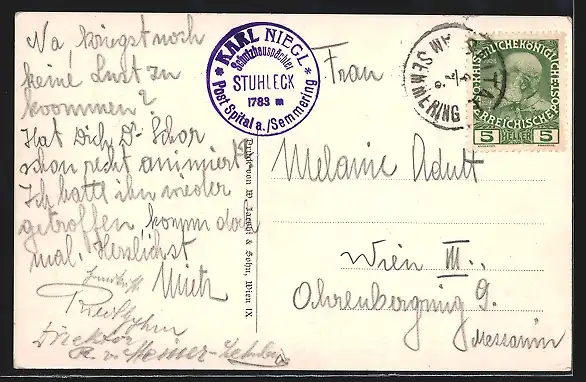 Na kriegst noch
keine Lust zu
kommen?
Hat Dich Dr. Schor
schon recht animiert?
Ich hatte ihn wieder
getroffen, komm doch
mal. Herzlichst
Mietz
Direktor
★ KARL NIEGL ★
Schutzhauspächter
STUHLECK
1783 m
Post Spital a./Semmering
Druck von W. Jacobi & Sohn, Wien IX
Frau
Melanie Adutt
Wien III.,
Ohrenberggung 9.
Messanin
AM SEMMERING
KAISERLICHE KÖNIGLICHE
ÖSTERREICHISCHE POST
5 HELLER 5